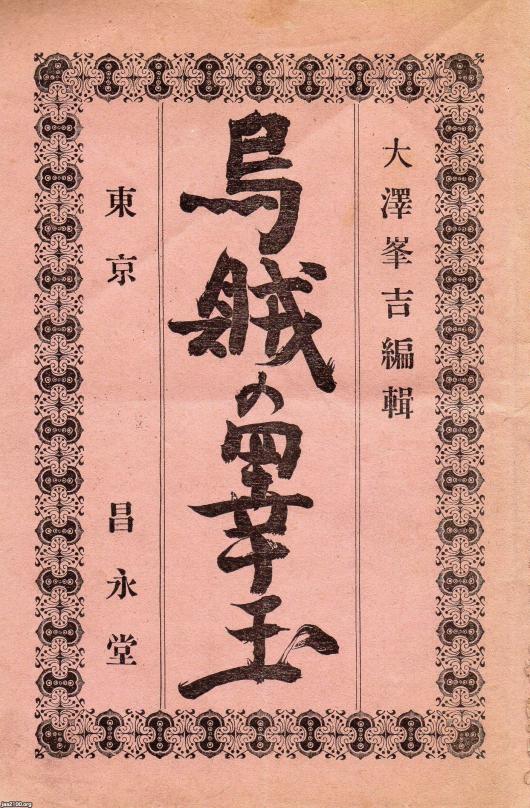 大澤峯吉編輯
烏賊の睾玉
東京 昌永堂
jaa2100.org